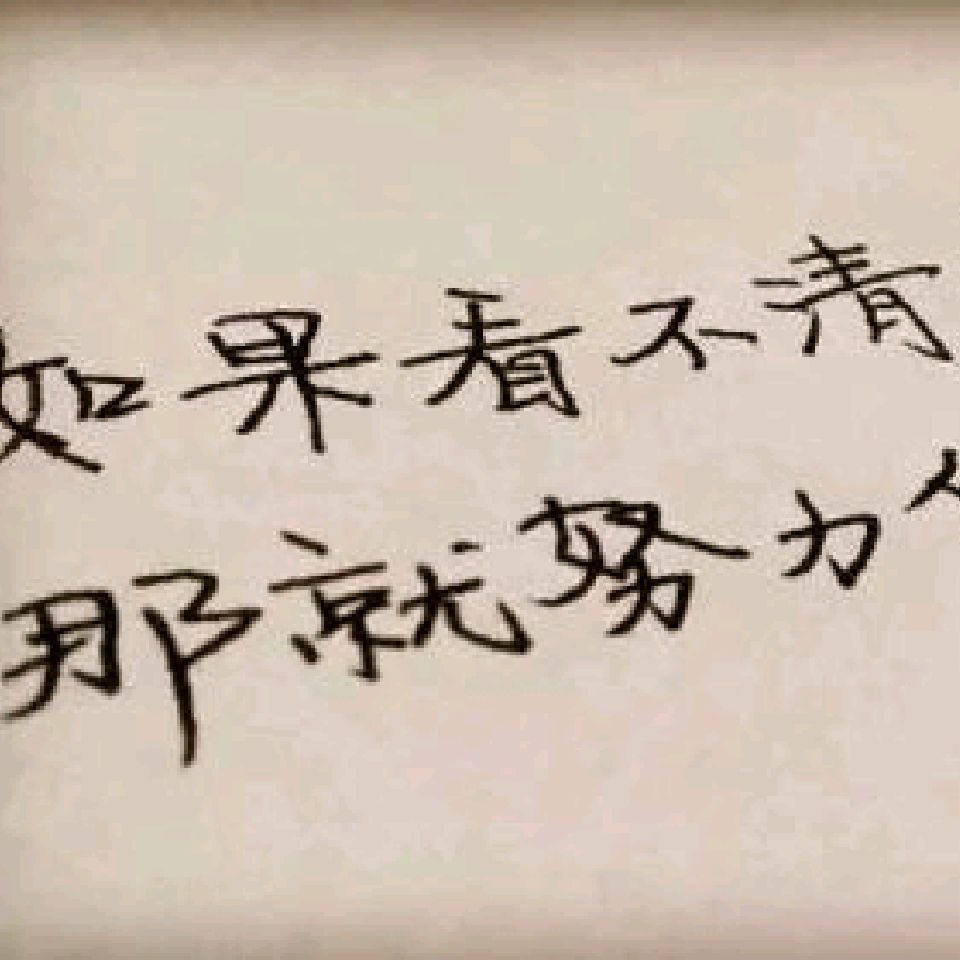 如果看不清
那就努力